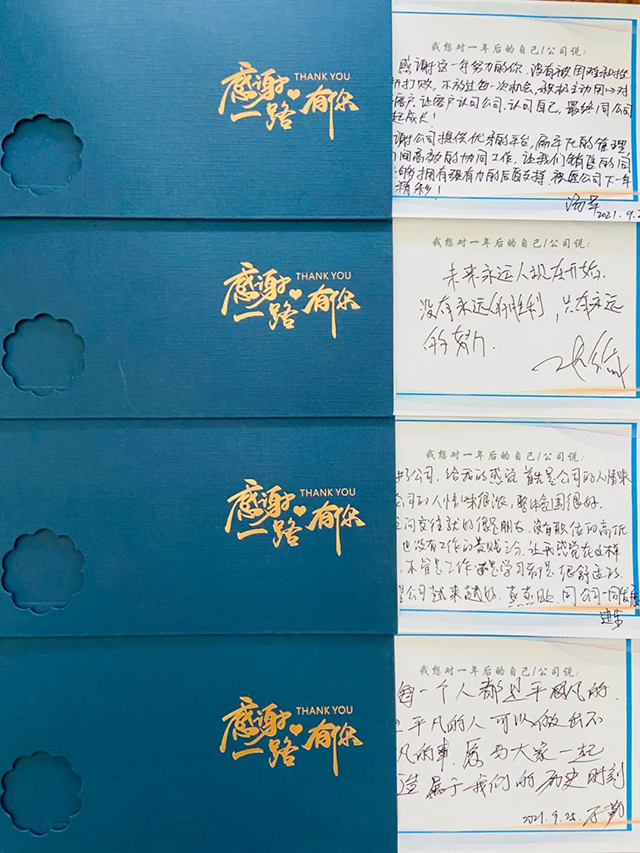 感谢一路有你
THANK YOU
我想对一年后的自己/公司说:
感谢这一年努力的你,没有被困难和挫
打败,不放过每一次机会,积极主动回对
客户,让客户认可公司,认可自己,最终同公司
起成长!
谢公司提供优秀的平台,扁平化的管理
间高效的协同工作,让我们销售的同
够拥有强有力的后盾支持,祝愿公司下一年
精彩!
2021.9.2
感谢一路有你
THANK YOU
我想对一年后的自己/公司说:
未来永远从现在开始,
没有永远的胜利,只有永远
的努力.
感谢一路有你
THANK YOU
我想对一年后的自己/公司说:
公司,给我的感觉首先是公司的人情味
公司的人情味很浓,整体氛围很好.
之间交往就好像是朋友,没有职位的高低
也没有工作的贵贱之分.让我感觉在这样
不管是工作还是学习都是很舒适的.
公司越来越好,蒸蒸日上,同公司一同发展
感谢一路有你
THANK YOU
我想对一年后的自己/公司说:
每一个人都是平凡的.
平凡的人可以做出不
凡的事.愿与大家一起
造属于我们的历史时刻
2021.9.25